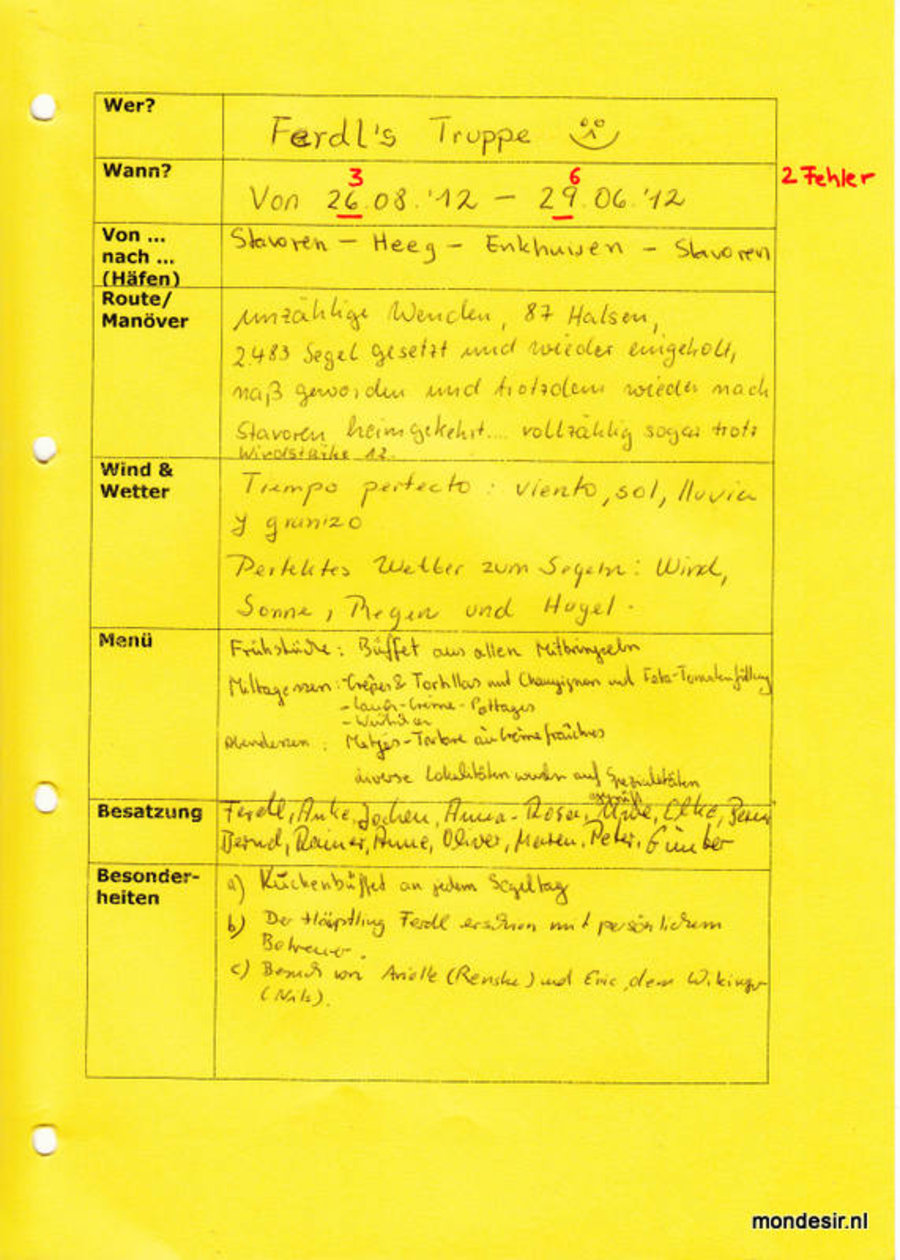 Wer?
Ferdl's Truppe
Wann?
3 6
Von 26.08.'12 – 29.06.'12
2 Fehler
Von ...
nach ...
(Häfen)
Stavoren – Heeg – Enkhuisen – Stavoren
Route/
Manöver
unzählige Wenden, 87 Halsen,
2483 Segel gesetzt und wieder eingeholt,
naß geworden und trotzdem wieder nach
Stavoren heimgekehrt.... vollzählig sogar trotz
Windstärke 12.
Wind &
Wetter
Tiempo perfecto: viento, sol, lluvia
y granizo
Perfektes Wetter zum Segeln: Wind,
Sonne, Regen und Hagel.
Menü
Frühstücke: Büffet aus allen Mitbringseln
Mittagessen: - Crêpes & Tortillas mit Champignon und Feta-Tomatenfüllung
- Lauch-Crème-Pottages
-
Abendessen: Matjes-Tartare an Crème fraîches
diverse Lokalitäten wurden auf Spezialitäten
geprüft
Besatzung
Ferdl, Anke, Jochen, Anna-Rosa, Elke,
Bernd, Rainer, Anne, Oliver, Maren, Peter, Günter
Besonder-
heiten
a) Kuchenbüffet an jedem Segeltag
b) Der Häuptling Ferdl erschien mit persönlichem
Betreuer.
c) Besuch von Arielle (Renske) und Eric, dem Wikinger
(Nils).
mondesir.nl